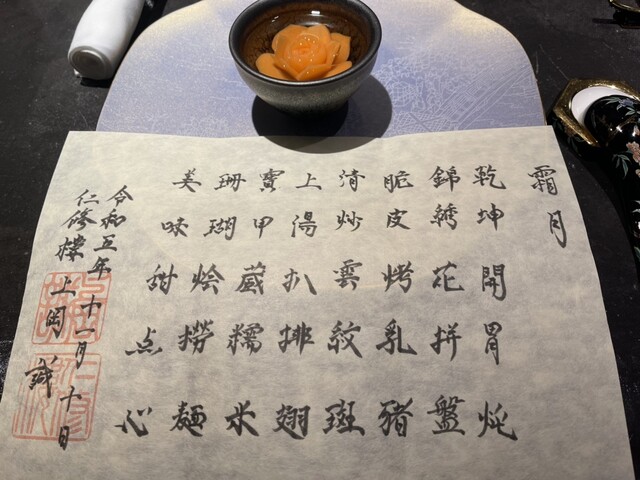 霜月
乾坤開胃炖
錦繡花拼盤
脆皮烤乳豬
清炒雲紋斑
上湯扒排翅
寳甲蔵糯米
珊瑚烩撈麺
美味甜点心
令和五年十一月十日
仁修樓上岡誠